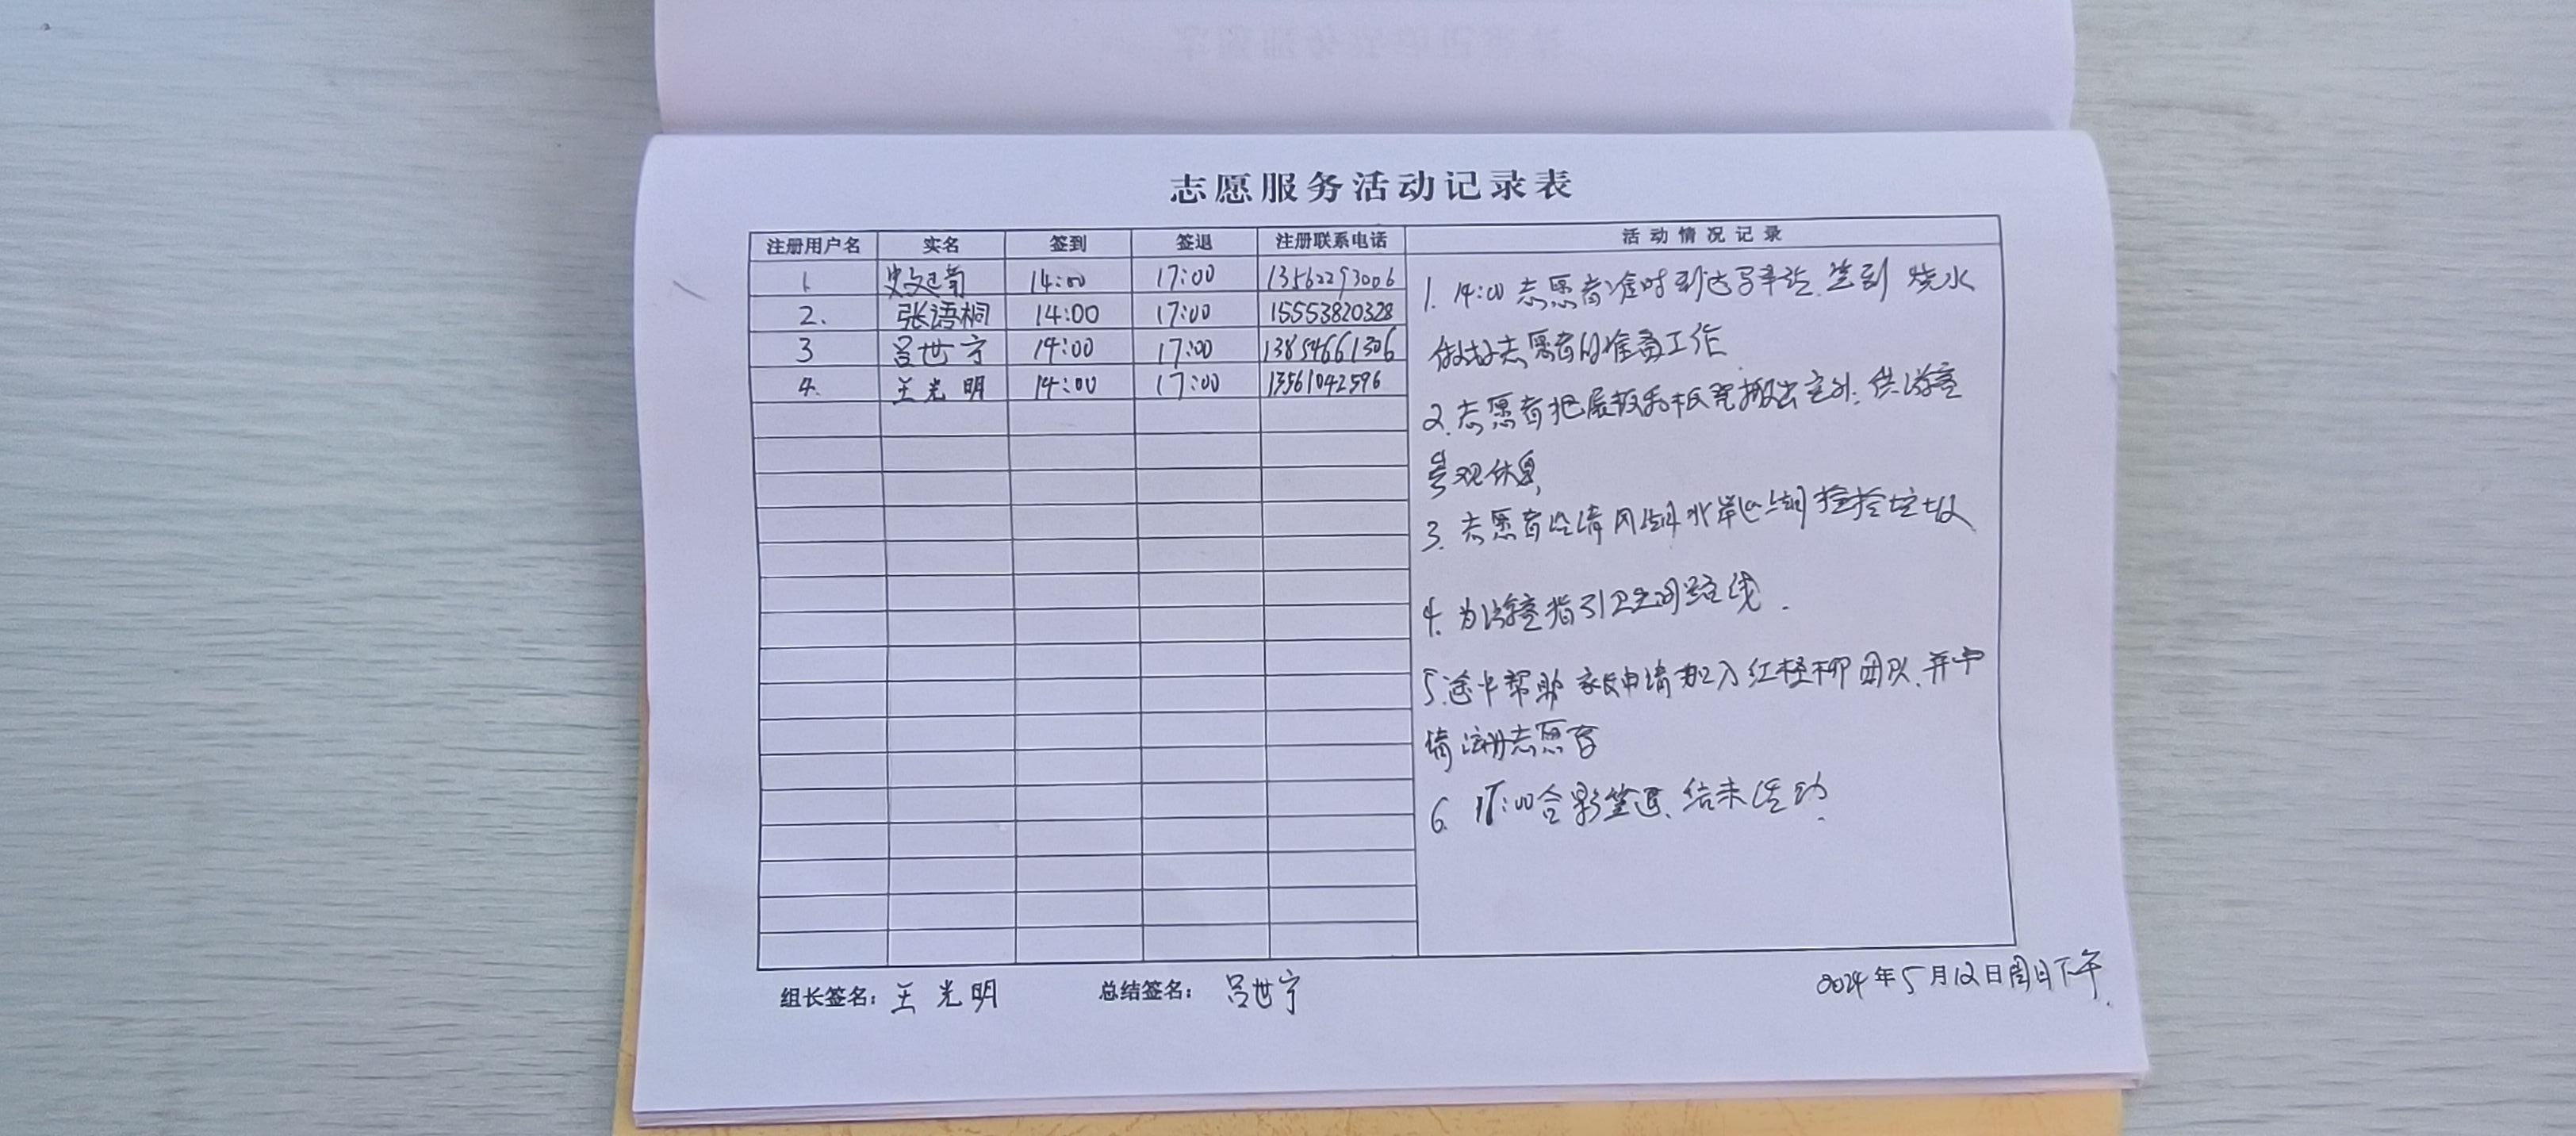 志愿服务活动记录表
注册用户名 实名 签到 签退 注册联系电话 活动情况记录
1. 14:00 17:00 13562293006
2. 张语桐 14:00 17:00 15553820328
3 吕世宁 14:00 17:00 13854661306
4. 王光明 14:00 17:00 13561042596
1. 14:00 志愿者准时到达 签到 烧水
做好志愿者的准备工作
2. 志愿者把展板和板凳搬出室外. 供游客
参观休息
3. 志愿者沿清风湖 捡拾垃圾
4. 为游客指引卫生间路线.
5. 途中帮助 申请加入红柽柳团队. 并申
请注册志愿者
6. 17:00合影签退. 结束活动.
组长签名: 王光明 总结签名: 吕世宁 2024年5月12日周日下午.